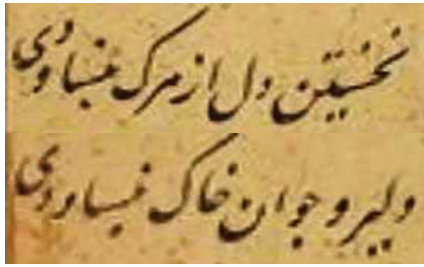 نخستین دل از مرک نبساودی
دلیر و جوان خاک نبساودی